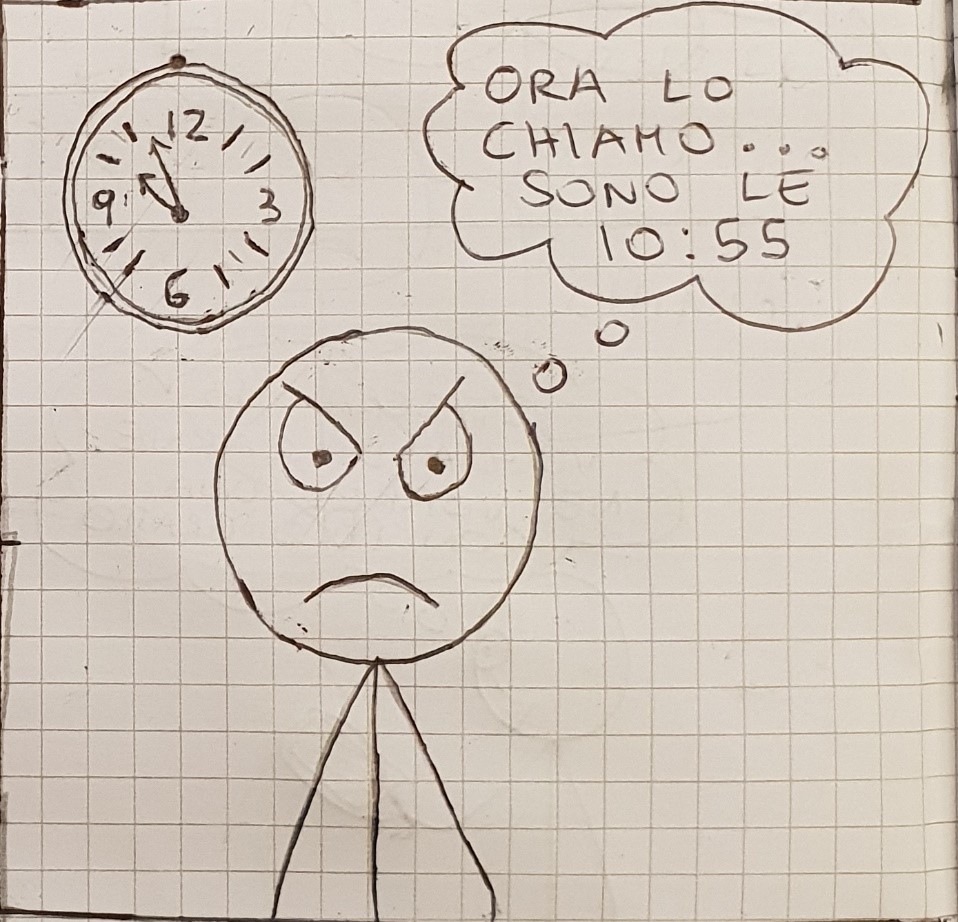 12
9
3
6
ORA LO
CHIAMO...
SONO LE
10:55